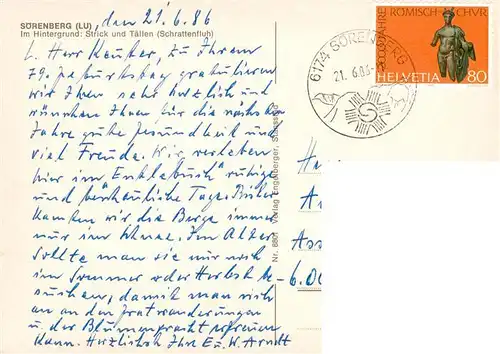 SÖRENBERG (LU)
Im Hintergrund: Strick und Tällen (Schrattenfluh)
den 21.6.86
L. Herr Keuter, zu Ihrem
79. Geburtstag gratulieren
wir Ihnen sehr herzlich und
wünschen Ihnen für die nächsten
Jahre gute Gesundheit und
viel Freude. Wir verleben
hier im "Entlebuch" ruhige
und beschauliche Tage. Bisher
kannten wir die Berge immer
nur im Schnee. Im Alter
sollte man sie nur noch
im Sommer oder Herbst be-
suchen, damit man sich
an den Gratwanderungen
u. der Blumenpracht erfreuen
kann. Herzlichst Ihre E. u. W. Arndt
Nr. 8801 Verlag Engelberger, Stansstad
6174 SÖRENBERG
21. 6.86
2000 JAHRE RÖMISCH CHUR
HELVETIA 80
6.00